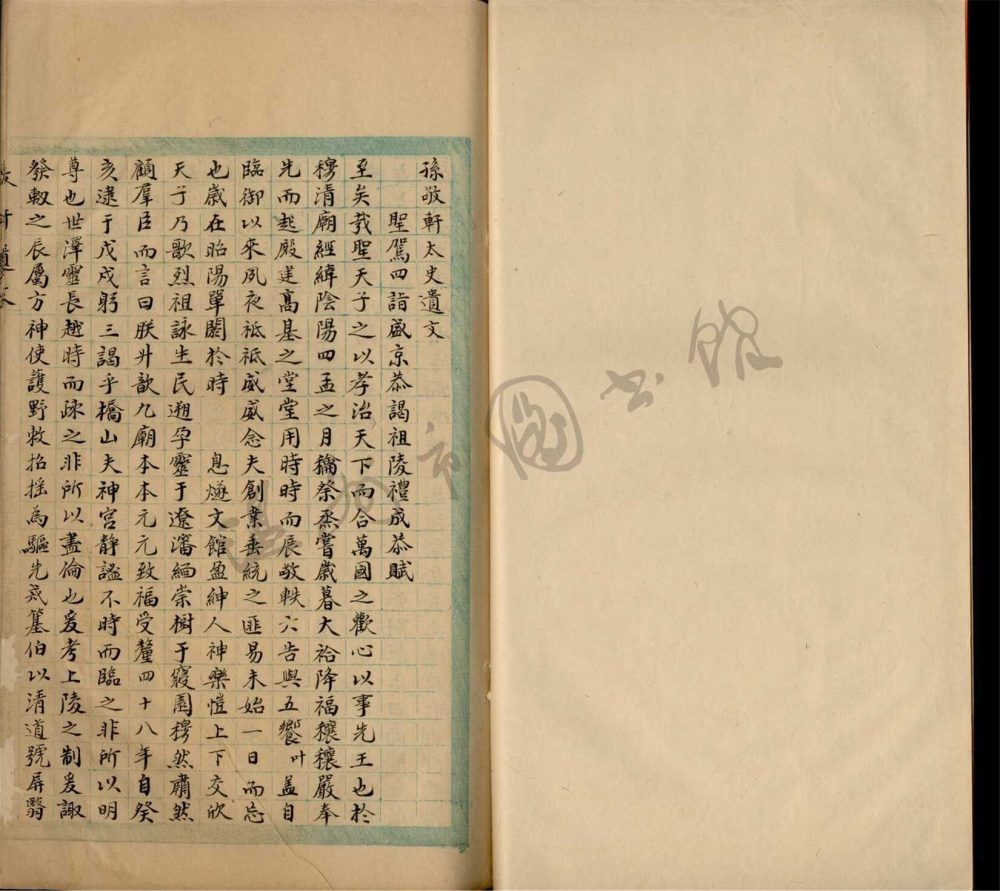 孫敬軒太史遺文
聖駕四詣盛京恭謁祖陵禮成恭賦
至矣哉聖天子之以孝治天下而合萬國之歡心以事先王也於
穆清廟經緯陰陽四孟之月禴祭烝嘗歲暮大祫降福穰穰嚴奉
先而起殿建高基之堂堂用時時而展敬軼六告與五饗叶蓋自
臨御以來夙夜祗祗威威念夫創業垂統之匪易未始一日而忘
也歲在昭陽單閼於時 息燧文館盈紳人神樂愷上下交欣
天子乃歌烈祖詠生民遡孕靈于遼瀋緬崇樹于寢園穆然肅然
顧羣臣而言曰朕升歆九廟本本元元致福受釐四十八年自癸
亥逮于戊戌躬三謁乎橋山夫神宮靜謐不時而臨之非所以明
尊也世澤靈長越時而疎之非所以盡倫也爰考上陵之制爰諏
發軔之辰屬方神使護野敕招搖為驅先戒篡伯以清道號屏翳
圖書館